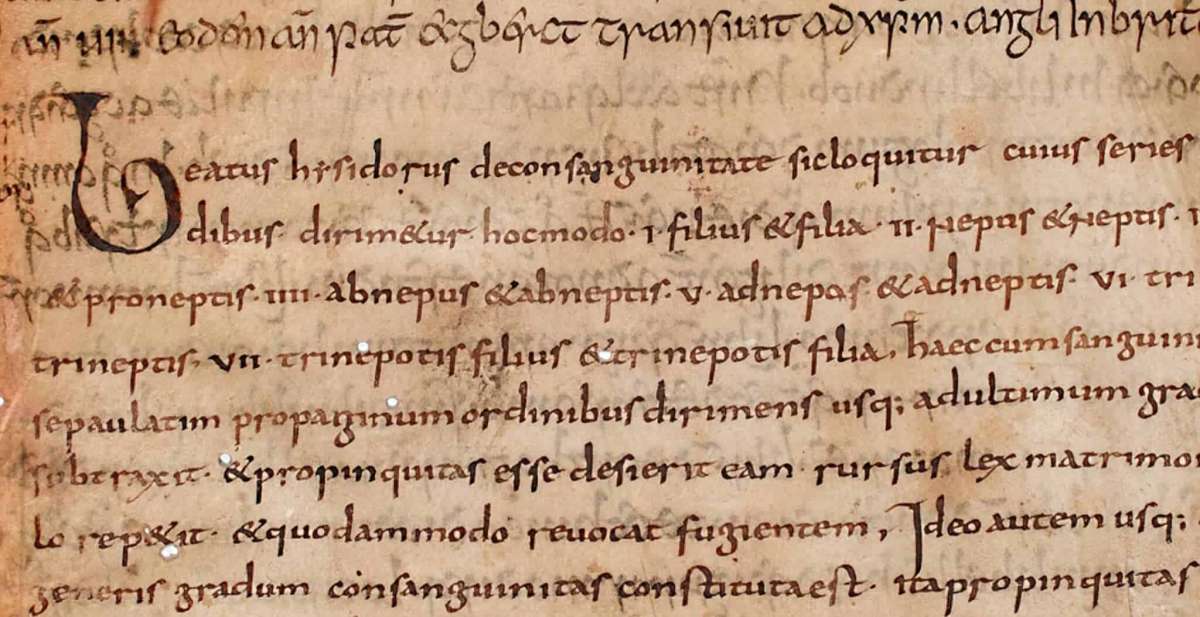 Eodem an̄ &gberct transiuit adxp̄m · angli In brit
Beatus hysidorus deconsanguinitate sicloquitur cuius series
dibus· dirim&ur hocmodo· I· filius &filia· II· Neptis &Neptis·
&proneptis· IIII· abnepus &abneptis· V· adnepos &adneptis· VI· tri
trineptis· VII· trinepotis filius &trinepotis filia, haeccumsanguini
sepaulatim propaginum ordinibus dirimens usq; adultimum gra
subtraxit· &propinquitas esse desierit eam rursus lex matrimo
lo rep&it· &quodammodo reuocat fugientem, Ideo autem usq;
generis gradum consanguinitas constitutaest· itapropinquitas